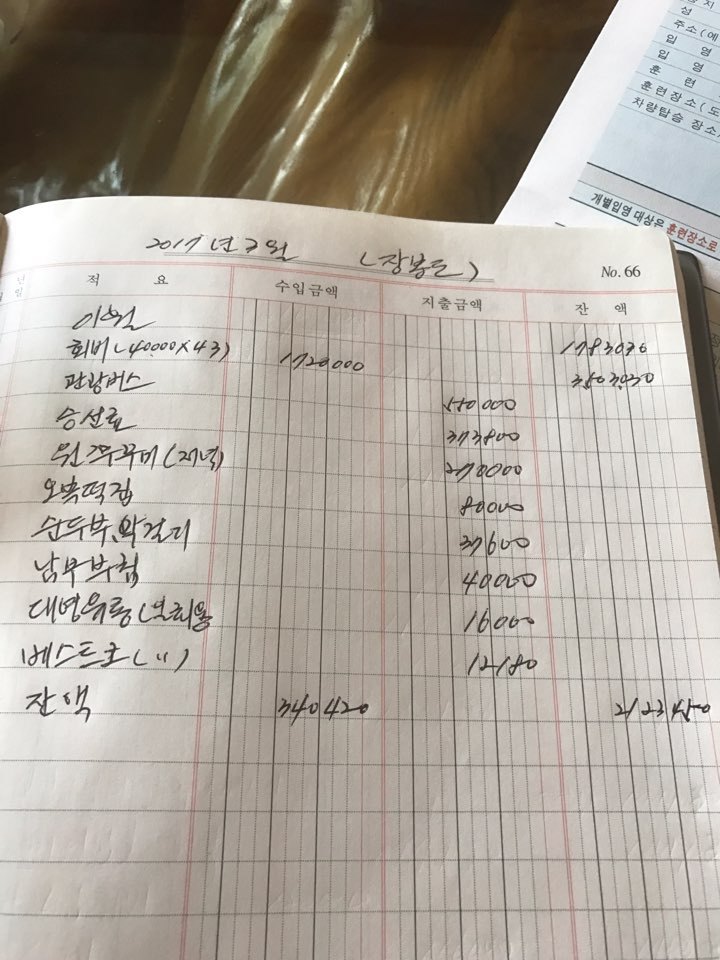 성
주소(예
입 영
입 영
훈 련
훈련장소(도
차량탑승 장소
개별입영 대상은 훈련장소로
2017년 7월 (장봉도)
No. 66
적 요 수입금액 지출금액 잔 액
이월 1783030
회비(40.000x43) 1720000 3503.030
관광버스 550000
승선료 373800
쭈꾸미(저녁) 270000
오복떡집 80000
순두부, 막걸리 37600
40000
대명유통 16000
베스트코(〃) 12180
잔액 340420 2123450